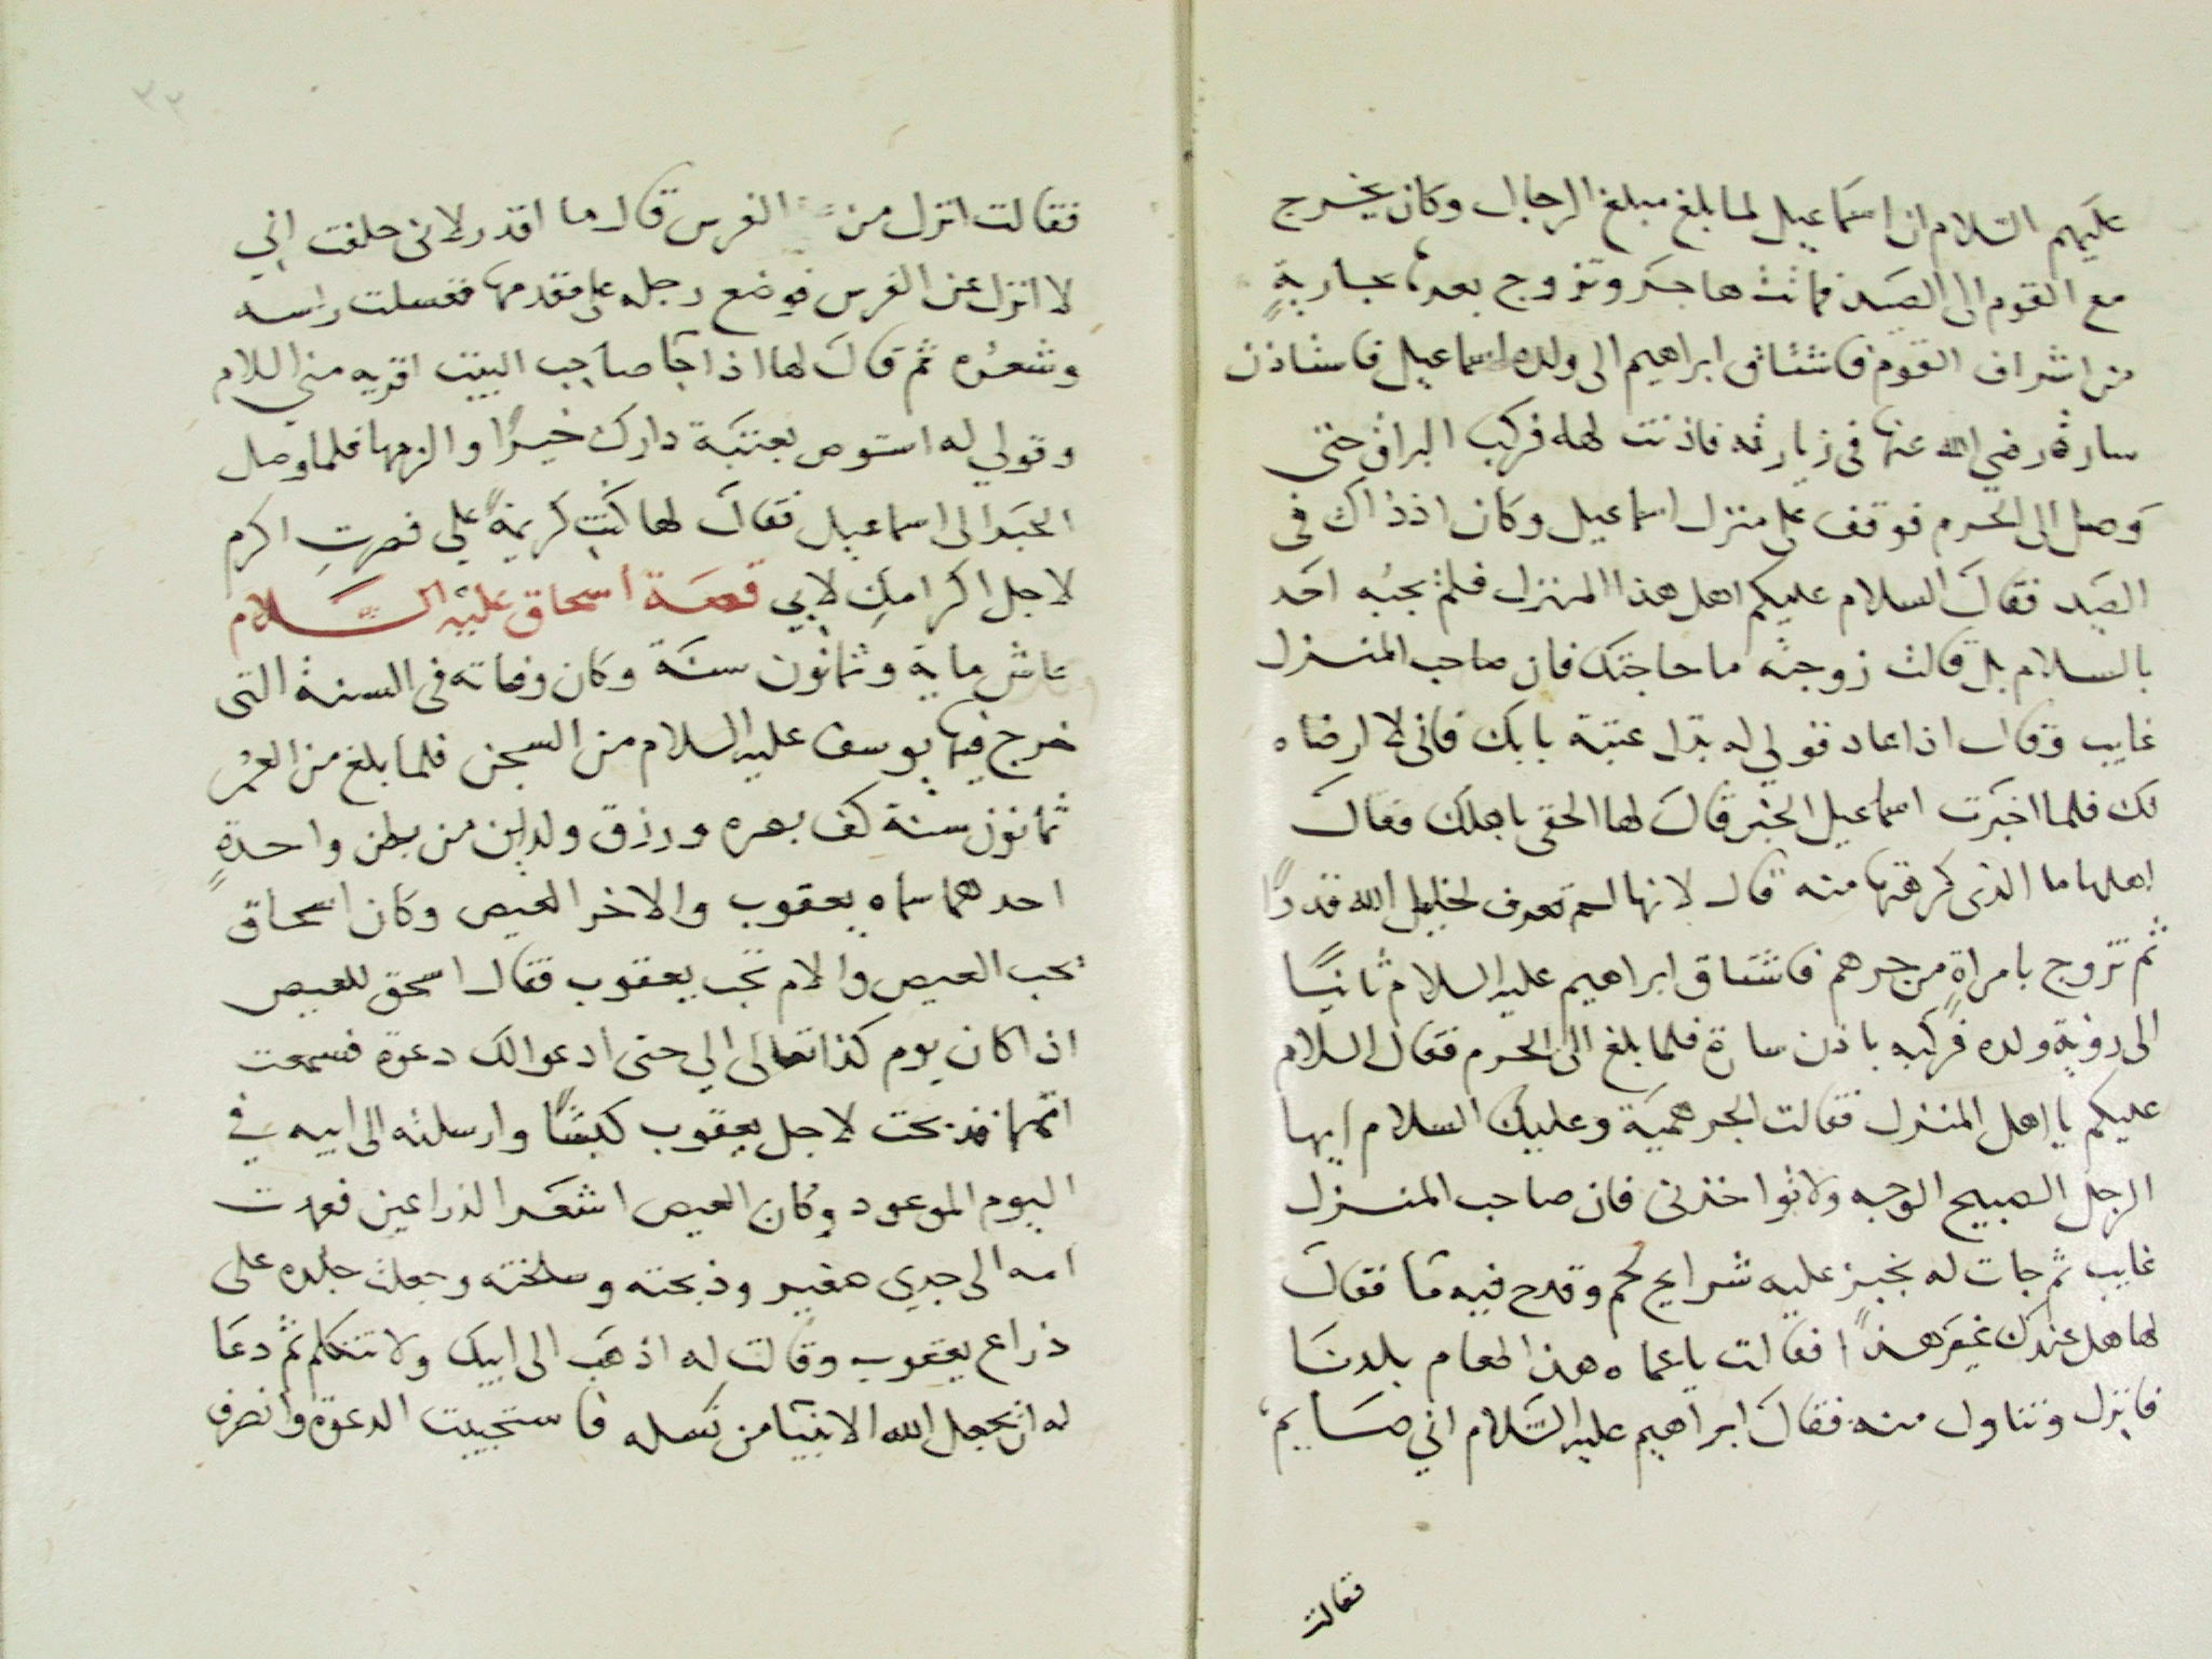 عليهم السلام ان اسماعيل لما بلغ مبلغ الرجال وكان يخرج
مع القوم الى الصيد فماتت هاجر وتزوج بعدها بجارية
من اشراف القوم فاشتاق ابراهيم الى ولده اسماعيل فاستاذن
سارة رضي الله عنها فى زيارته فاذنت له فركب البراق حتى
وصل الى الحرم فوقف على منزل اسماعيل وكان اذ ذاك فى
الصيد فقال السلام عليكم اهل هذا المنزل فلم يجبه احد
بالسلام بل قالت زوجته ما حاجتك فان صاحب المنزل
غايب وقال اذا عاد قولي له بدل عتبة بابك فانى لا ارضاه
لك فلما اخبرت اسماعيل الخبر قال لها الحقى باهلك فقال
اهلها ما الذى كرهتها منه قال لانها لم تعرف لخليل الله قدرا
ثم تزوج بامراة من جرهم فاشتاق ابراهيم عليه السلام ثانيا
الى رؤية ولده فركبه باذن سارة فلما بلغ الى الحرم فقال السلام
عليكم يا اهل المنزل فقالت الجرهمية وعليك السلام ايها
الرجل الصبيح الوجه ولا تواخذنى فان صاحب المنزل
غايب ثم جات له بخبز عليه شرايح لحم وقدح فيه ما فقال
لها هل عندك غير هذا فقالت يا عماه هذا طعام بلدنا
فانزل وتناول منه فقال ابراهيم عليه السلام اني صايم
فقالت
٣٢
فقالت انزل من الفرس قال ما اقدر لانى حلفت اني
لا انزل عن الفرس فوضع رجله على مقدمها فغسلت راسه
وشعره ثم قال لها اذا جا صاحب البيت اقريه مني السلام
وقولي له استوص بعتبة دارك خيرا والزمها فلما وصل
الخبر الى اسماعيل فقال لها كنت كريمة علي فصرت اكرم
لاجل اكرامك لابي قصة اسحاق عليه السلام
عاش ماية وثمانون سنة وكان وفاته فى السنة التى
خرج فيها يوسف عليه السلام من السجن فلما بلغ من العمر
ثمانون سنة كف بصره ورزق ولدين من بطن واحدة
احدهما سماه يعقوب والاخر العيص وكان اسحاق
يحب العيص والام تحب يعقوب فقال اسحق للعيص
اذا كان يوم كذا تعالى الي حتى ادعو لك دعوة فسمعت
امهما فذبحت لاجل يعقوب كبشا وارسلته الى ابيه في
اليوم الموعود وكان العيص اشعر الذراعين فعمدت
امه الى جدي صغير وذبحته وسلخته وجعلت جلده على
ذراع يعقوب وقالت له اذهب الى ابيك ولا تتكلم ثم دعا
له ان يجعل الله الانبيا من نسله فاستجيبت الدعوة وانصرف